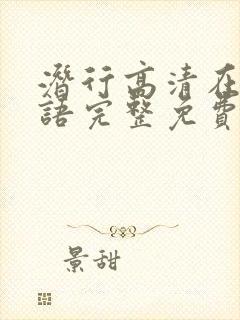 潛行高清在
語完整免費
景甜